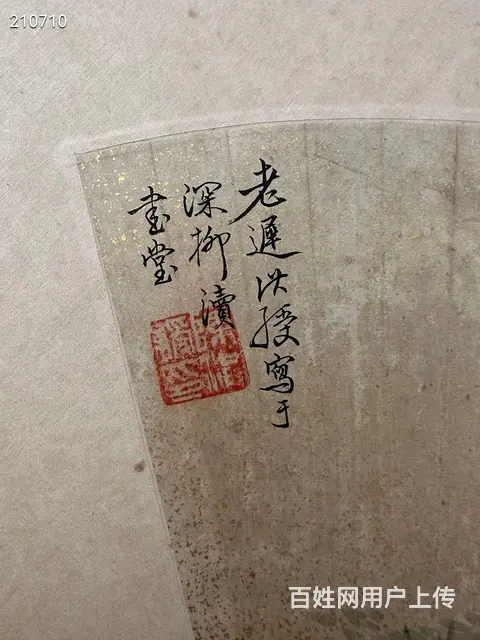 210710
老遲洪綬寫于
深柳瀆
書堂
百姓网用户上传